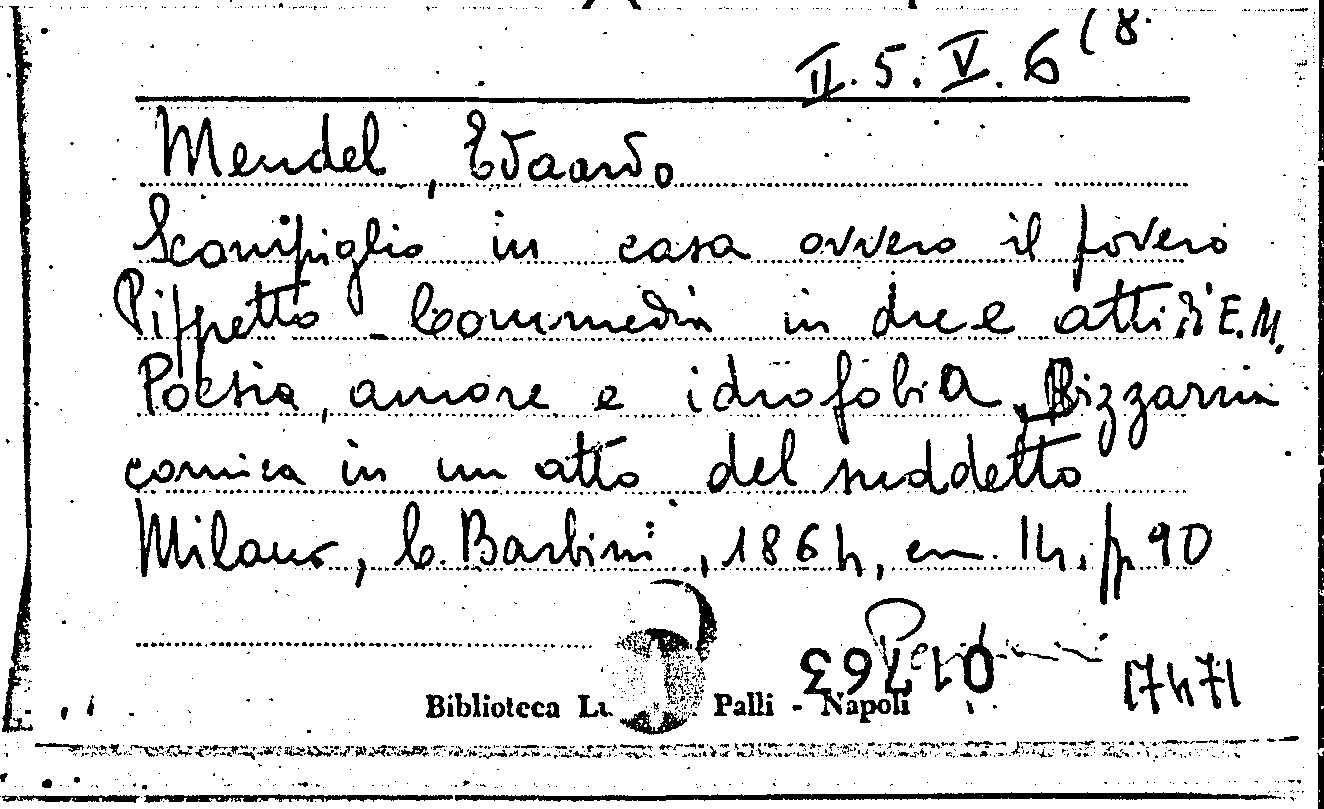 II. 5. V. 6 (8.
Mendel, Edoardo
Scompiglio in casa ovvero il povero
Pippetto - Commedia in due atti di E.M.
Poesia, amore e idrofobia, Bizzarria
comica in un atto del suddetto
Milano, C. Barbini, 1864, cm. 14, pp 90
Biblioteca Lu Palli - Napoli